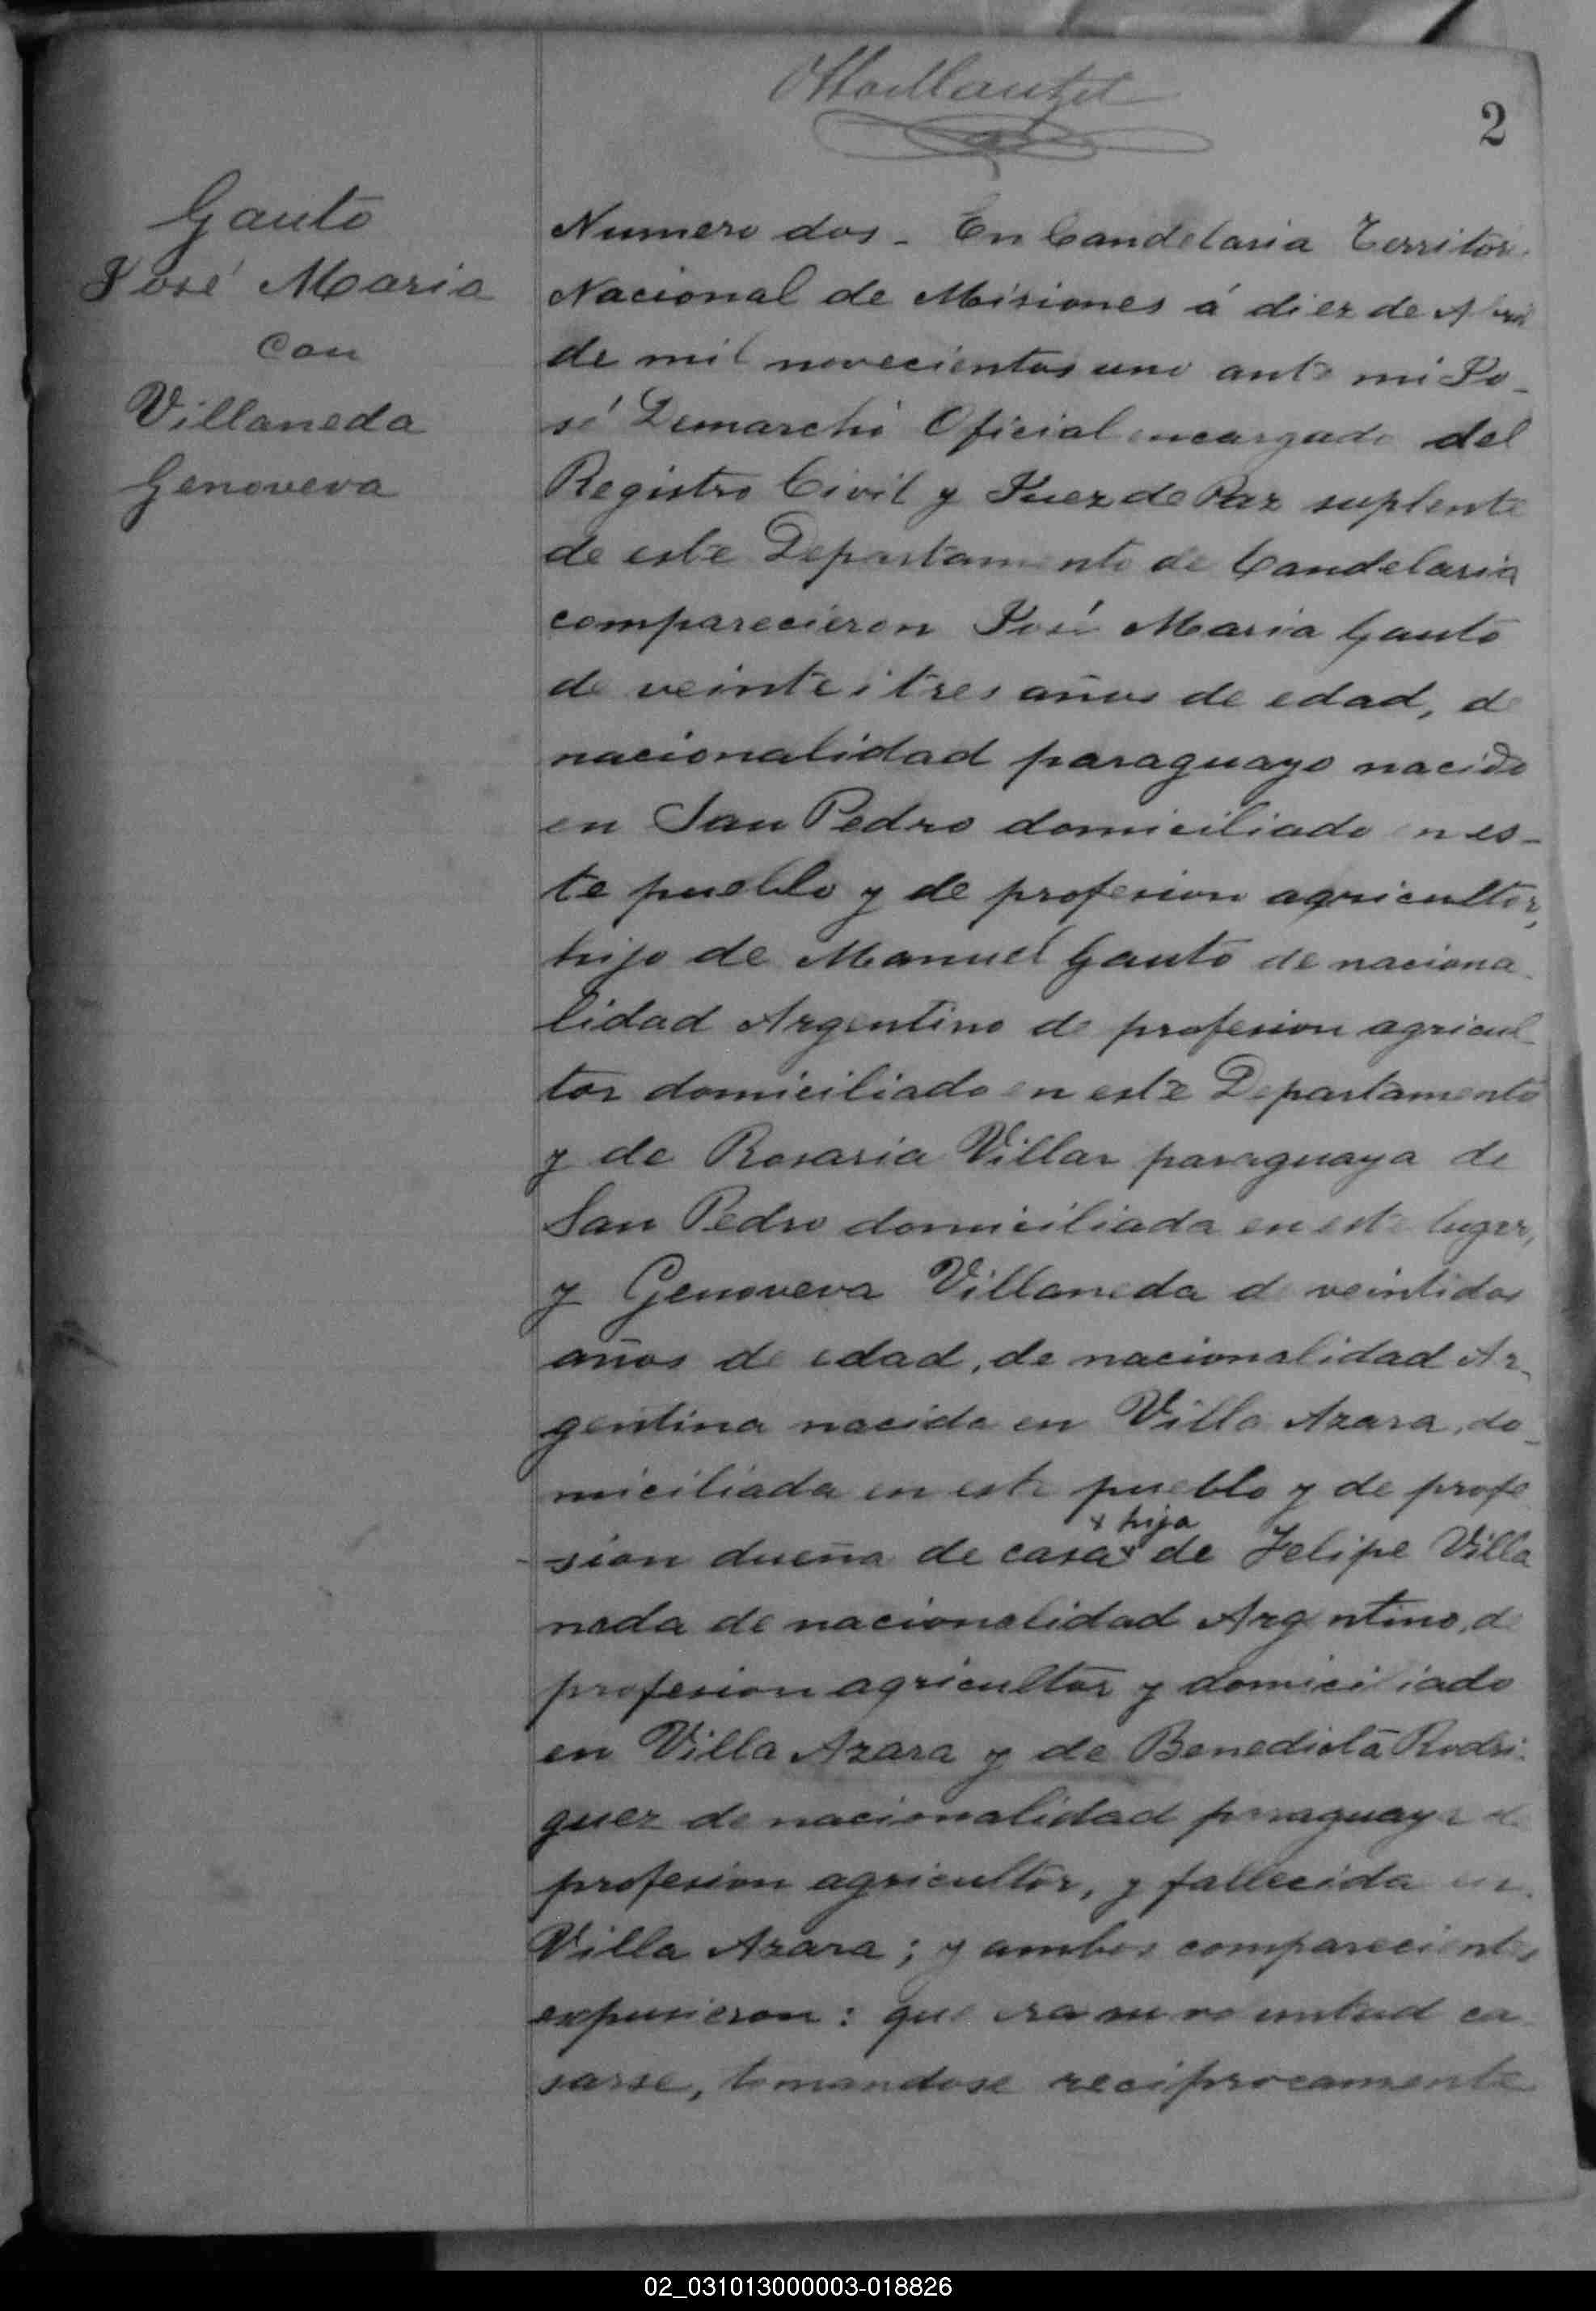 2
Gauto
José Maria
con
Villaneda
Genoveva
Numero dos - En Candelaria Territor
Nacional de Misiones á diez de Abril
de mil novecientos uno ante mi Jo-
sé Demarchi Oficial encargado del
Registro Civil y Juez de Paz suplente
de este Departamento de Candelaria
comparecieron José Maria Gauto
de veinte i tres años de edad, de
nacionalidad paraguayo nacido
en San Pedro domiciliado en es-
te pueblo y de profesion agricultor,
hijo de Manuel Gauto de naciona
lidad Argentino de profesion agricul-
tor domiciliado en este Departamento
y de Rosaria Villar paraguaya de
San Pedro domiciliada en este lugar,
y Genoveva Villaneda de veintidos
años de edad, de nacionalidad Ar-
gentina nacida en Villa Azara, do-
miciliada en este pueblo y de profe
x hija
sion dueña de casa x de Felipe Villa
neda de nacionalidad Argentino, de
profesion agricultor y domiciliado
en Villa Azara y de Benedicta Rodri-
guez de nacionalidad paraguaya de
profesion agricultor, y fallecida en
Villa Azara; y ambos comparecientes
expusieron: que era su voluntad ca-
sarse, tomandose reciprocamente
02_031013000003-018826